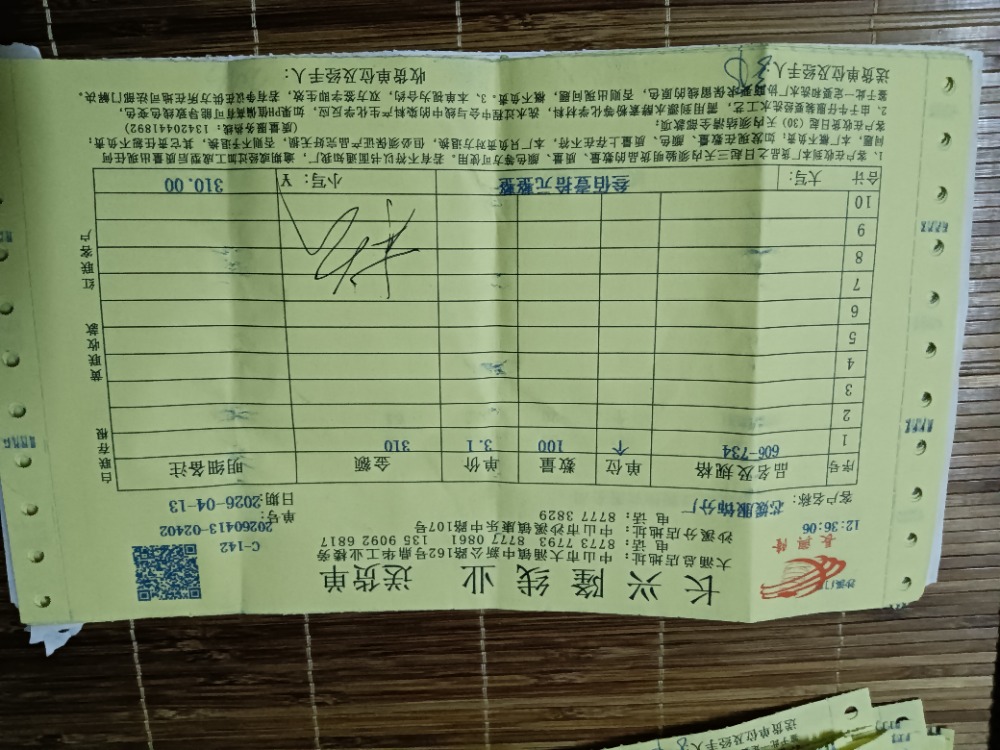 长兴隆线业 送货单
沙溪门
长兴隆
C-142
大涌总店地址：中山市大涌镇中新公路162号鼎华工业楼旁
电话：8773 7793 8777 0861 135 9092 6817
沙溪分店地址：中山市沙溪镇康乐中路107号
电话：8777 3829
12:36:06
单号：20260413-02402
客户名称：芯媛服饰分厂
日期：2026-04-13
序号 品名及规格 单位 数量 单价 金额 明细备注
1 606-734 个 100 3.1 310
2
3
4
5
6
7
8
9
10
合计 大写：叁佰壹拾元整整 小写：￥ 310.00
白联存根 黄联收款 红联客户
1、客户在收到本厂货品之日起三天内须验明货品的数量、质量、颜色等方可使用，若有不符以书面通知我厂，逾期或经过加工成型后质量出现任何
问题，本厂概不负责。如发现在数量、颜色、质量上存在不符，本厂只负责对方退换，但必须保证产品完好无损，否则不予退换，其它责任恕不负责；
客户在收货日起（30）天内须结清全部款项；
(质量服务热线：13420441892)
2、由于牛仔服装要经洗水工艺，
洗水过程中会与线中的染料产生化学反应，如果PH值偏高有可能导致线色变色，
3、本单视为合约，双方签字即生效，若有争议在供方所在地司法部门解决。
送货单位及经手人：
收货单位及经手人：
送货单位及经手人